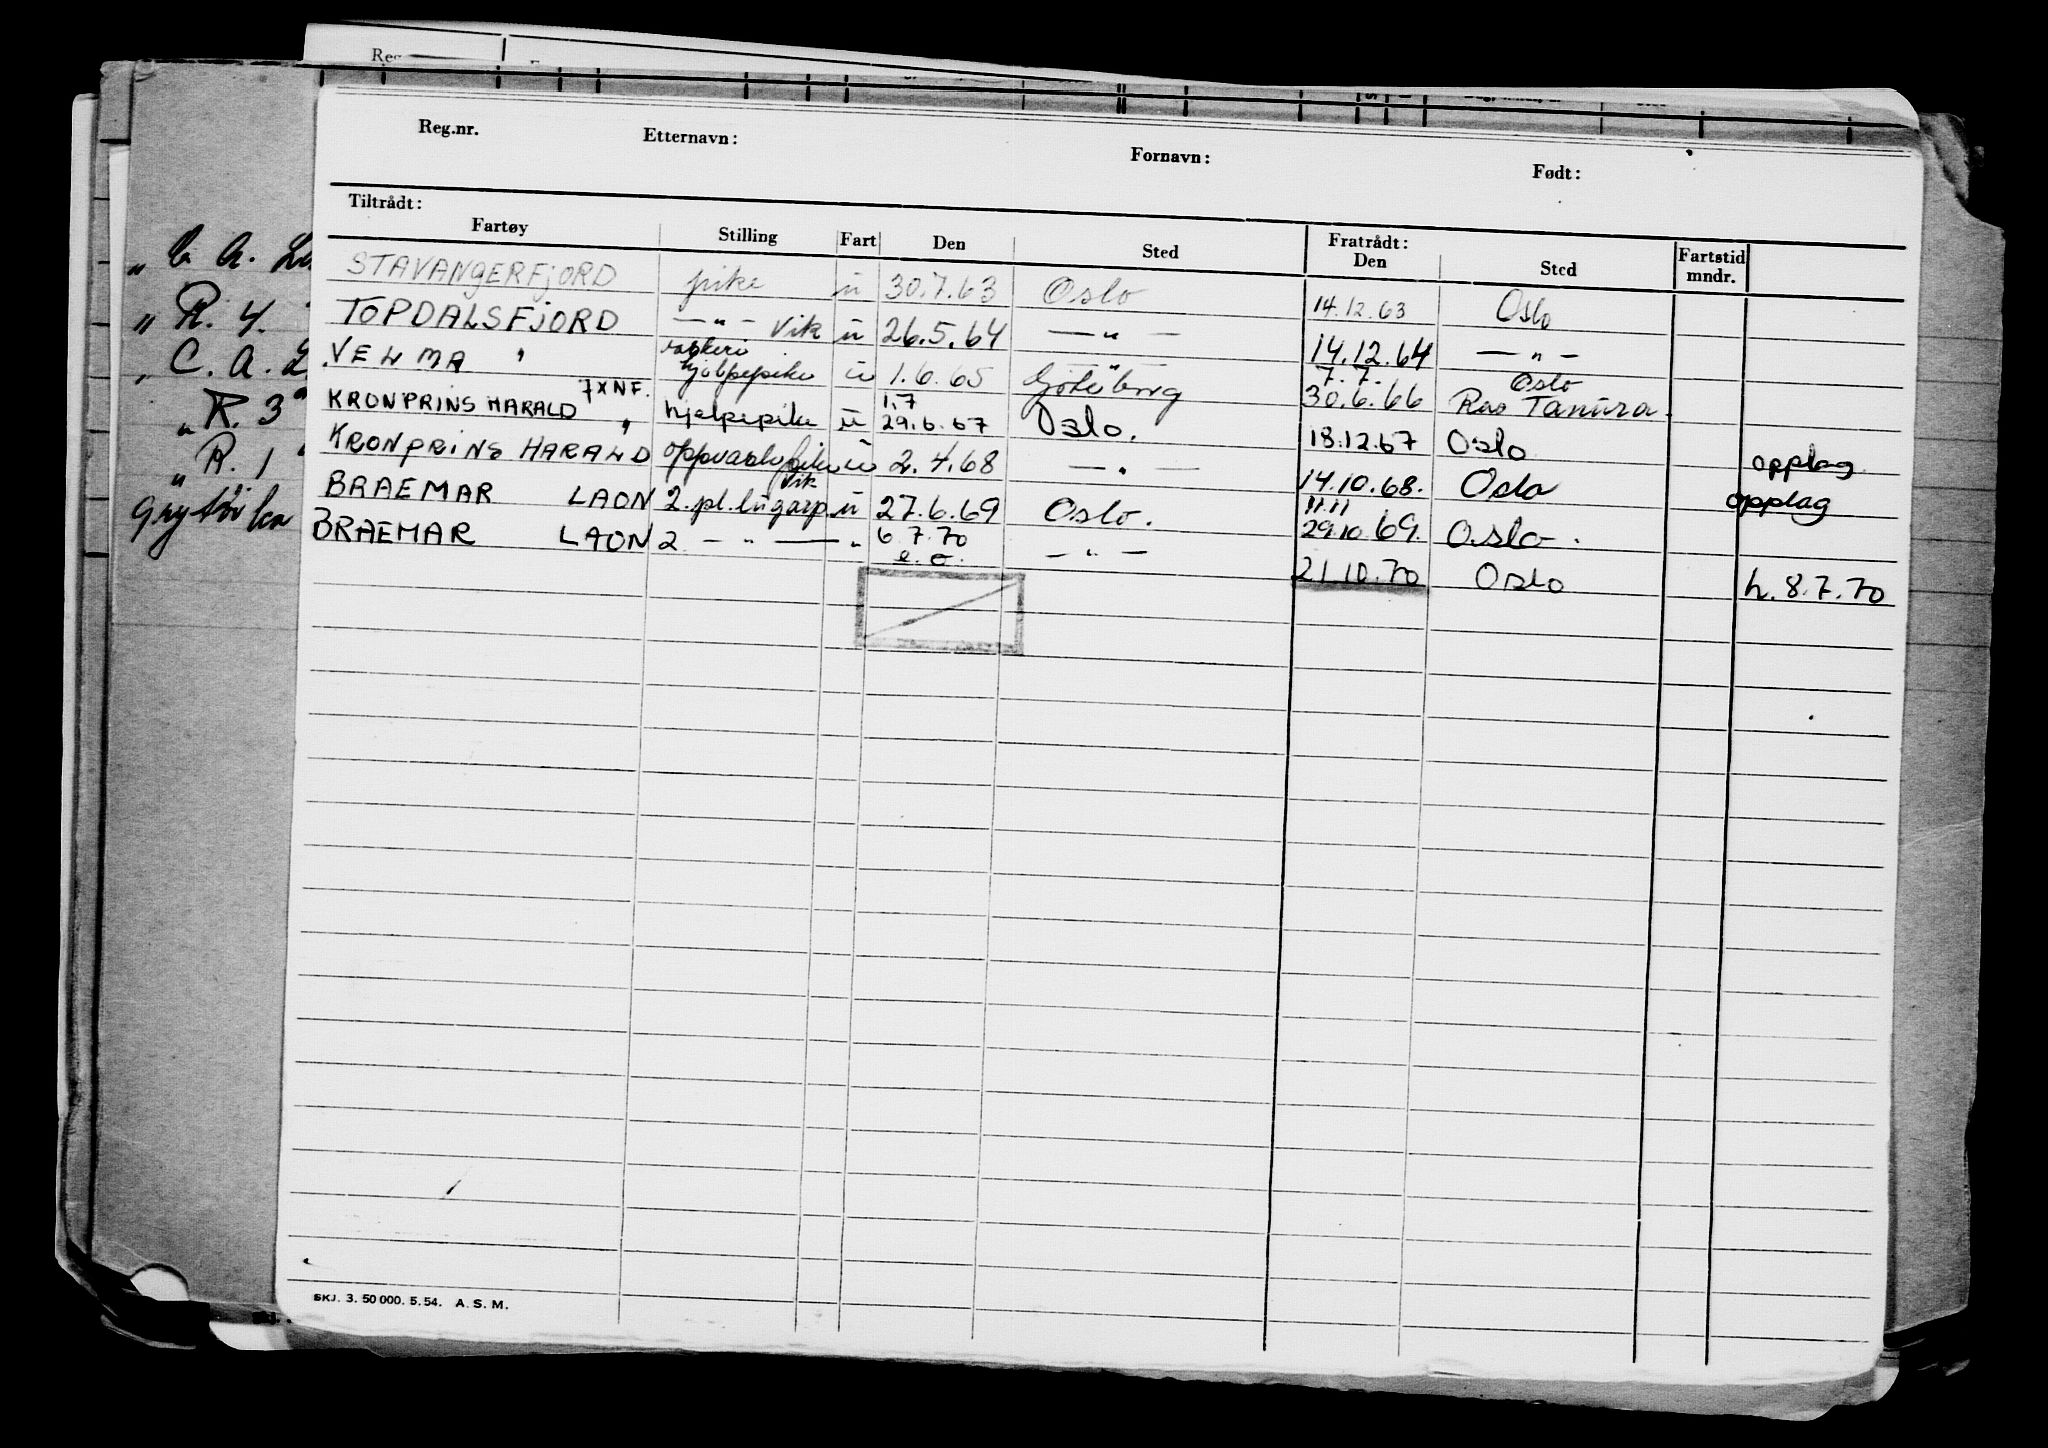 Reg.nr. Etternavn: Fornavn: Født:
Tiltrådt: Fratrådt:
Fartøy Stilling Fart Den Sted Den Sted Fartstid mndr.
STAVANGERFJORD pike ü 30.7.63 Oslo 14.12.63 Oslo
TOPDALSFJORD — " — Vik ü 26.5.64 — " — 14.12.64 — " —
VELMA " hjelpepike ü 1.6.65 Göteborg 7.7. 30.6.66 Oslo Ras Tanura
KRONPRINS HARALD 7XNF. " hjelpepike ü 1.7 29.6.67 Oslo. 18.12.67 Oslo opplag
KRONPRINS HARALD ü 2.4.68 — " — 14.10.68. Oslo opplag
BRAEMAR LAON 2.pl.lugarp. Vik ü 27.6.69 Oslo. 11.11 29.10.69. Oslo.
BRAEMAR LAON 2 — " — " 6.7.70 e.o. — " — 21.10.70 Oslo h. 8.7.70
" C. A.
" R. 4.
" C. A. L
" R. 3
" R. 1 "
SKJ. 3. 50 000. 5. 54. A. S. M.